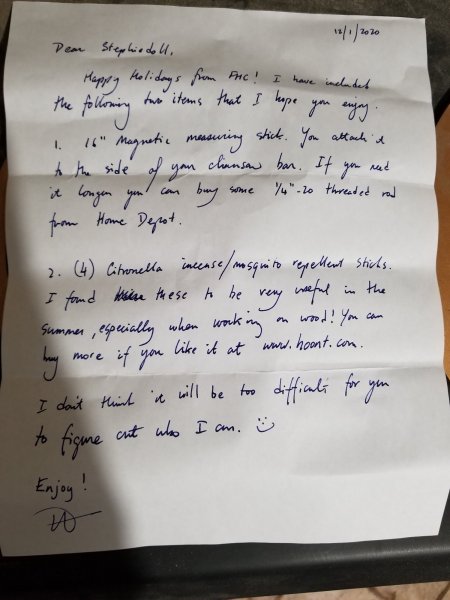 12/1/2020
Dear Stephiedoll,
Happy Holidays from FHC! I have included
the following two items that I hope you enjoy.
1. 16" Magnetic measuring stick. You attach it
to the side of your chainsaw bar. If you need
it longer you can buy some 1/4"-20 threaded rod
from Home Depot.
2. (4) Citronella incense/mosquito repellent sticks.
I found these to be very useful in the
summer, especially when working on wood! You can
buy more if you like it at www.hoont.com.
I don't think it will be too difficult for you
to figure out who I am. :)
Enjoy!